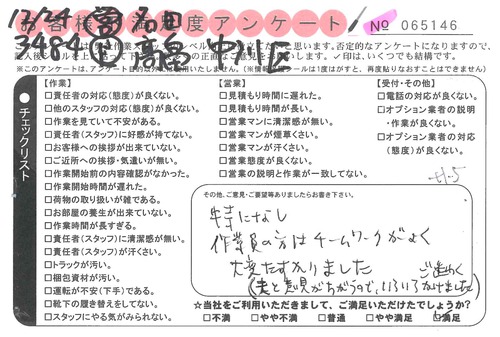 12/24
お客様満足度アンケート
№ 065146
3484
中川区
※このアンケートは、
チェックリスト
【作業】
□責任者の対応(態度)が良くない。
□他のスタッフの対応(態度)が良くない。
□作業を見ていて不安がある。
□責任者(スタッフ)に好感が持てない。
□お客様への挨拶が出来ていない。
□ご近所への挨拶・気遣いが無い。
□作業開始前の内容確認がなかった。
□作業開始時間が遅れた。
□荷物の取り扱いが雑である。
□お部屋の養生が出来ていない。
□作業時間が長すぎる。
□責任者(スタッフ)に清潔感が無い。
□責任者(スタッフ)が汗くさい。
□トラックが汚い。
□梱包資材が汚い。
□運転が不安(下手)である。
□靴下の履き替えをしてない。
□スタッフにやる気がみられない。
【営業】
□見積もり時間に遅れた。
□見積もり時間が長い。
□営業マンに清潔感が無い。
□営業マンが煙草くさい。
□営業マンが汗くさい。
□営業態度が良くない。
□営業の説明と作業が一致してない。
【受付・その他】
□電話の対応が良くない。
□オプション業者の説明
・作業が良くない。
□オプション業者の対応
(態度)が良くない。
その他、ご意見・ご要望等ありましたらお書き下さい。
特になし
作業員の方はチームワークがよく
大変たすかりました
(夫と意見がちがうので、いろいろ
☆当社をご利用いただきまして、ご満足いただけたでしょうか?
□不満 □やや不満 □普通 □やや満足 □満足